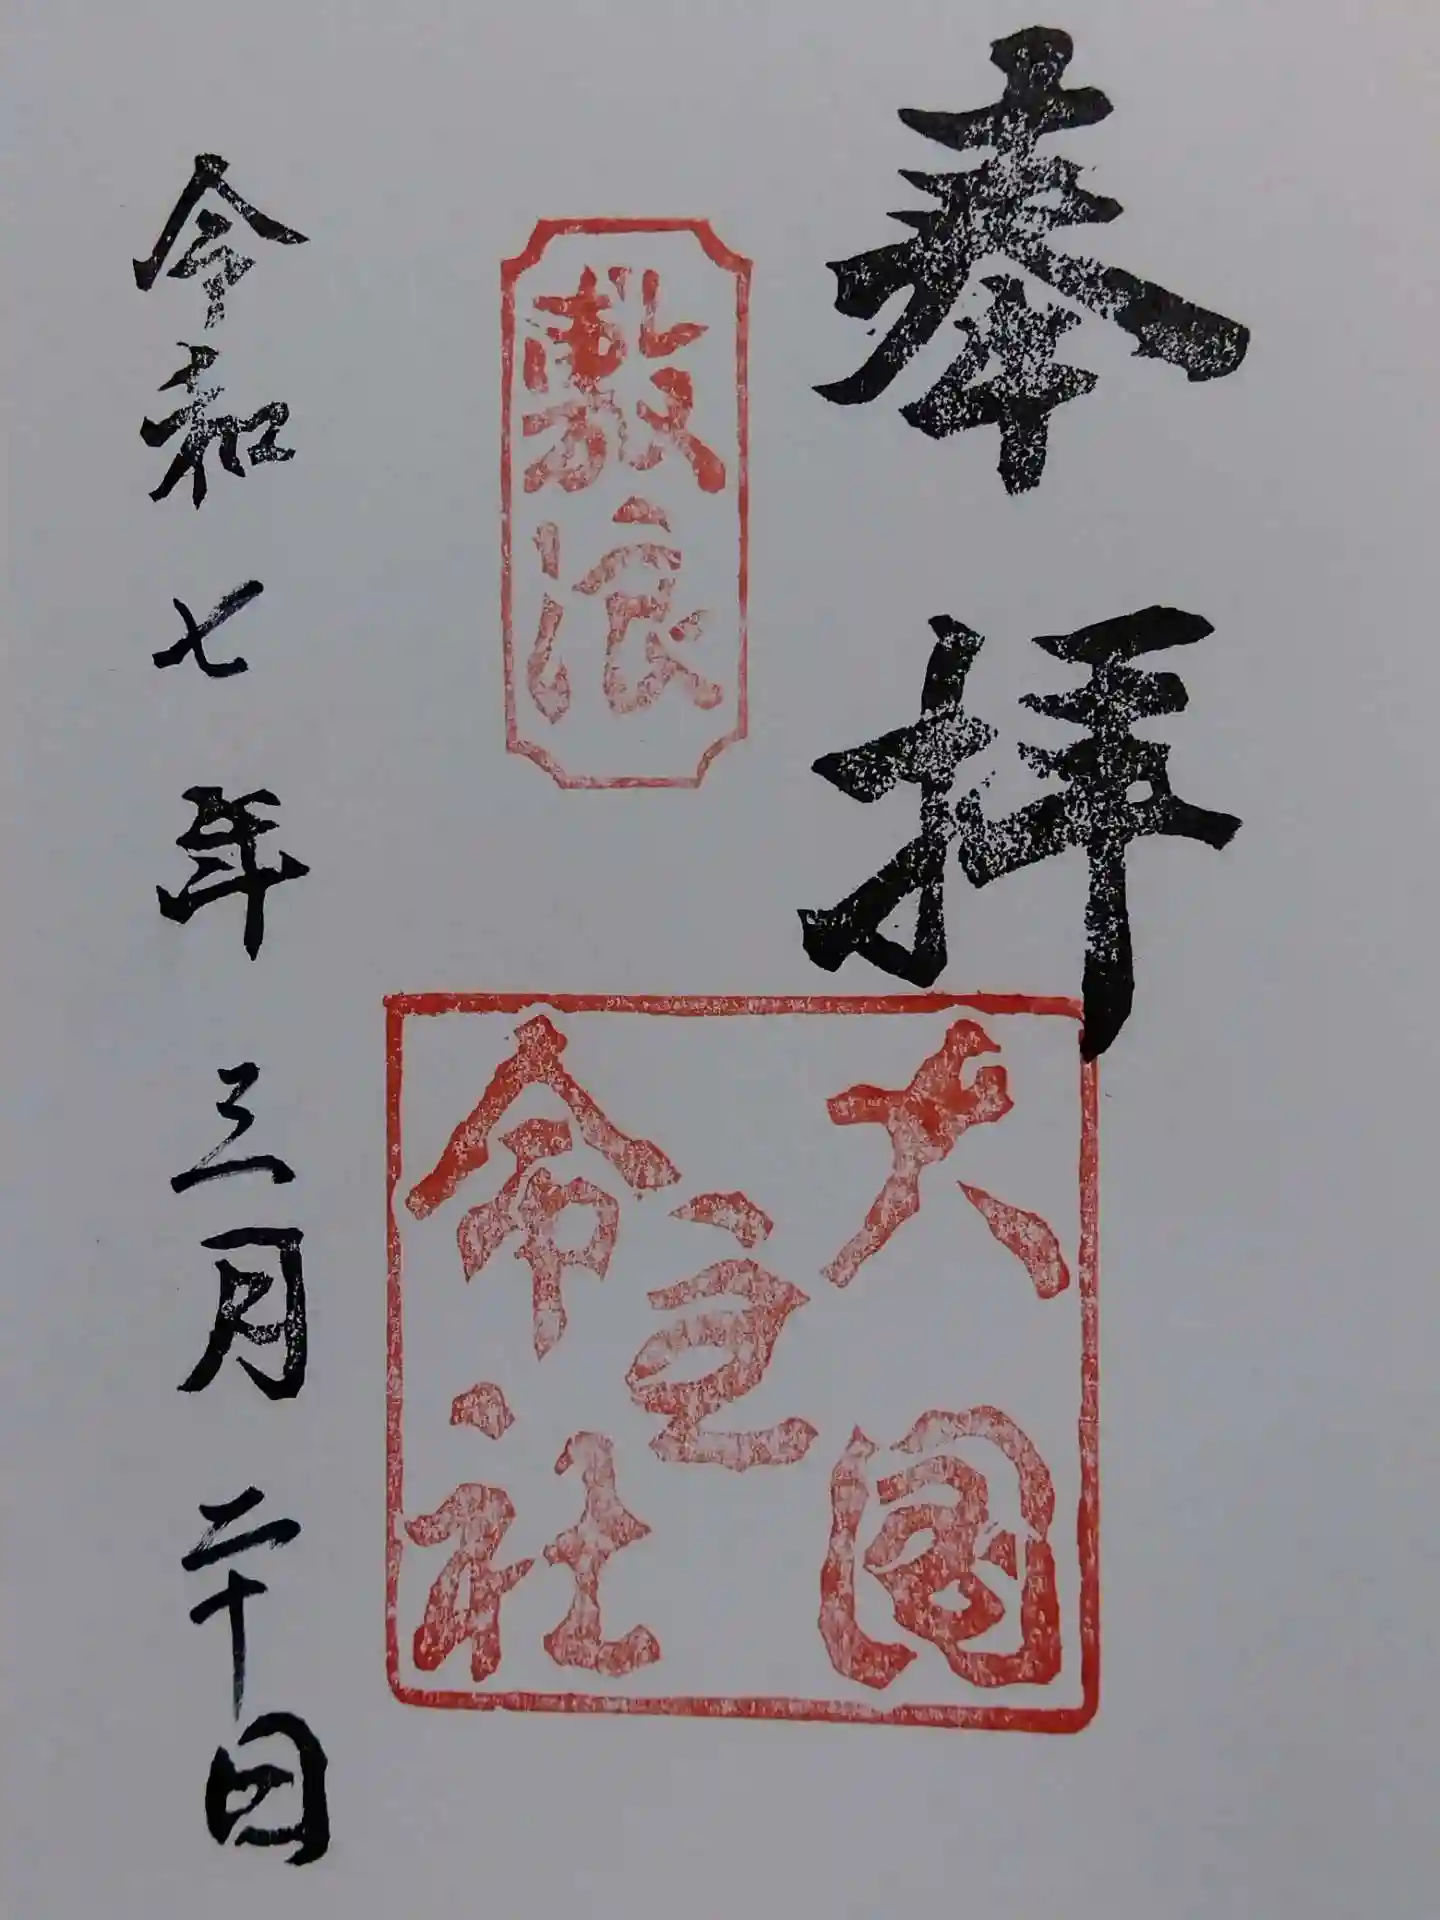 奉拝
敷浪
大國
主
命社
令和七年三月二十日